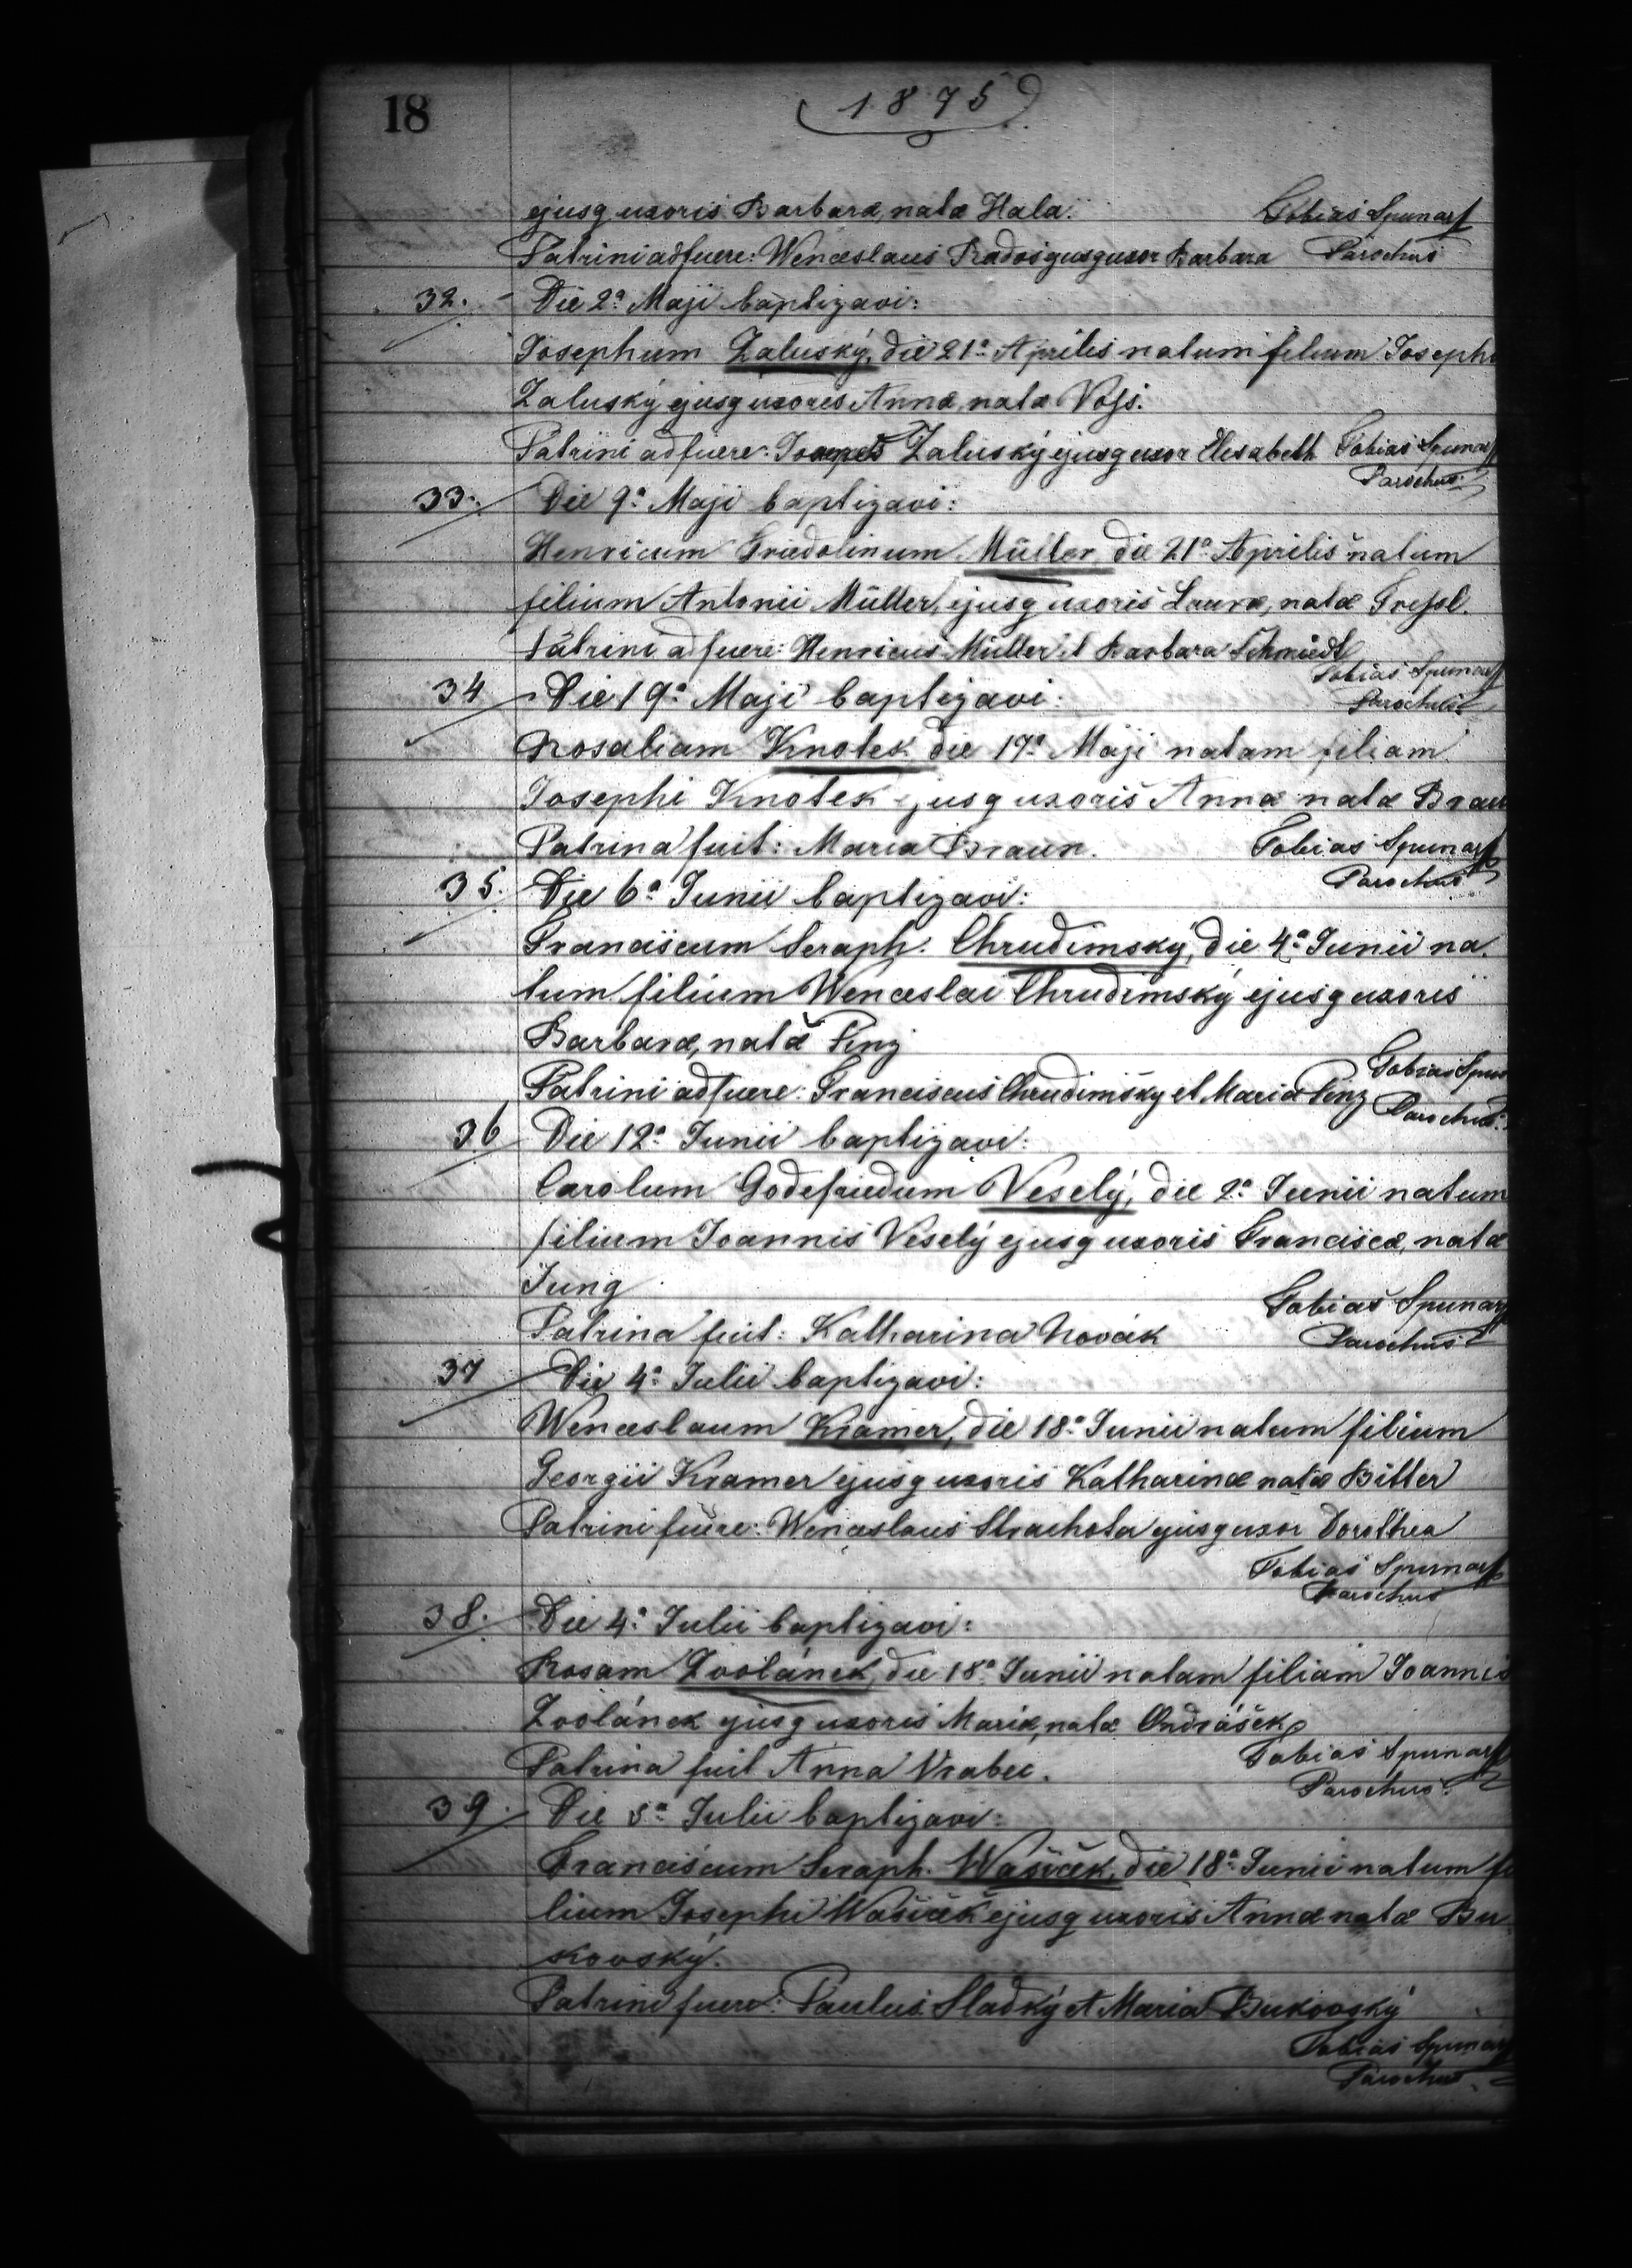 18
1875
ejusq uxoris Barbaræ, natæ Hala. Tobias Spunar
Patrini adfuere: Wenceslaus Rados ejusq uxor Barbara Parochus
32. Die 2ª Maji baptizavi:
Josephum Zaluský, die 21ª Aprilis natum filium Josephi
Zaluský ejusq uxoris Annæ, natæ
Patrini adfuere: Zaluský ejusq uxor Elisabeth Tobias Spunar
Parochus
33. Die 9ª Maji baptizavi:
Henricum Friedolinum Müller die 21ª Aprilis natum
filium Antonii Müller, ejusq uxoris Lauræ, natæ
Patrini adfuere: Henricus Müller et Barbara Schmiedt
Tobias Spunar
34 Die 19ª Maji baptizavi:
Parochus
Rosaliam Knotek die 17ª Maji natam filiam
Josephi Knotek ejusq uxoris Annæ natæ Braun
Patrina fuit: Maria Braun. Tobias Spunar
Parochus
35. Die 6ª Junii baptizavi:
Franciscum Seraph. Chrudimský, die 4ª Junii na
tum filium Wenceslai Chrudimský ejusq uxoris
Barbaræ, natæ Penz
Tobias Spunar
Patrini adfuere: Franciscus Chrudimský et Maria Penz Parochus.
36 Die 12ª Junii baptizavi:
Carolum Godefriedum Veselý, die 2ª Junii natum
filium Joannis Veselý ejusq uxoris Franciscæ, natæ
Jung
Tobias Spunar
Patrina fuit: Katharina Novák Parochus
37 Die 4ª Julii baptizavi:
Wenceslaum Kramer, die 18ª Junii natum filium
Georgii Kramer ejusq uxoris Katharinæ natæ Bitter
Patrini fuere: Wenceslaus Strachota ejusq uxor Dorothea
Tobias Spunar
Parochus
38. Die 4ª Julii baptizavi:
Rosam Zvolánek, die 18ª Junii natam filiam Joannis
Zvolánek ejusq uxoris Mariæ, natæ Ondrášek
Patrina fuit Anna Vrabec. Tobias Spunar
Parochus.
39. Die 5ª Julii baptizavi:
Franciscum Seraph. Wašiček, die 18ª Junii natum fi
lium Josephi Wašiček ejusq uxoris Annæ natæ Bu
kovský.
Patrini fuere: Paulus Sladký et Maria Bukovský
Tobias Spunar
Parochus